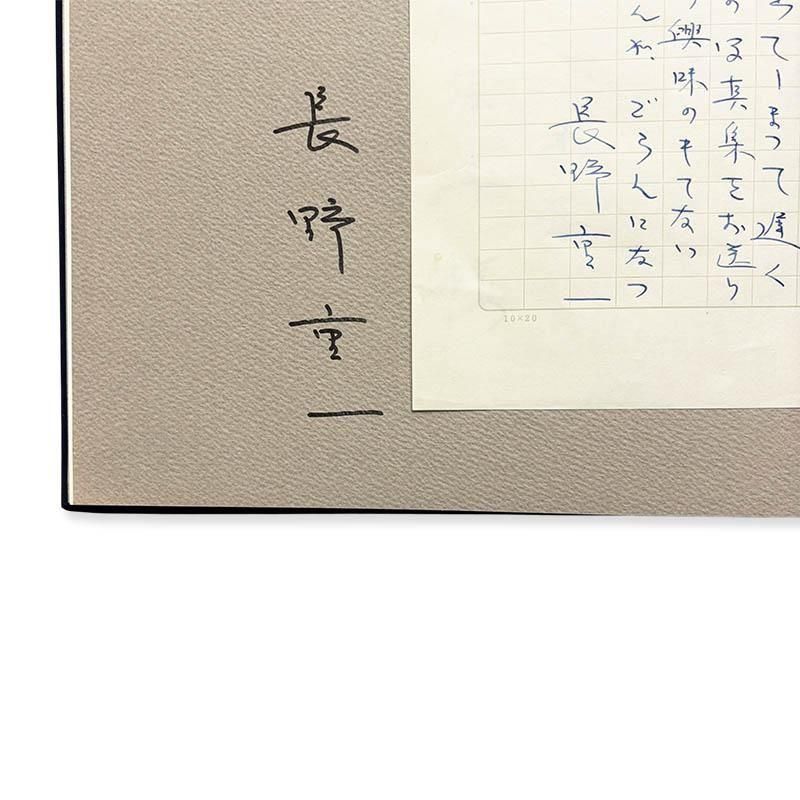 ってしまって遅く
の写真集をお送り
興味のもてない
んが、ごらんになつ
長野重一
10×20
長野重一